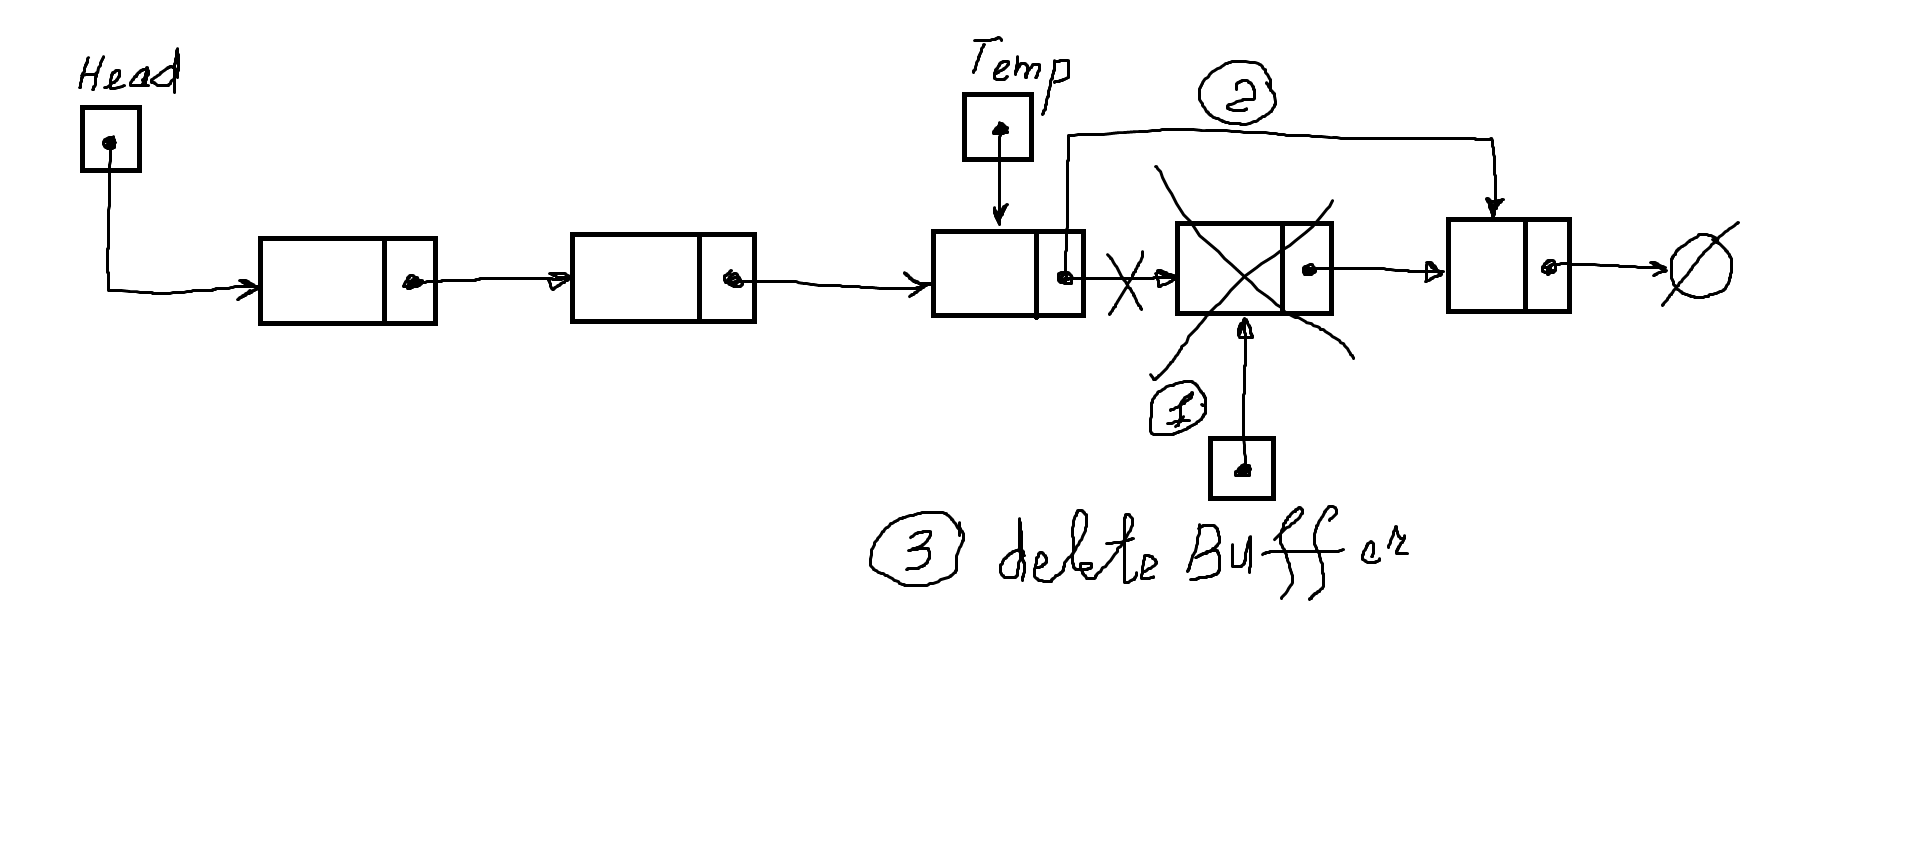 Head
Temp
2
1
3 delete Buffer